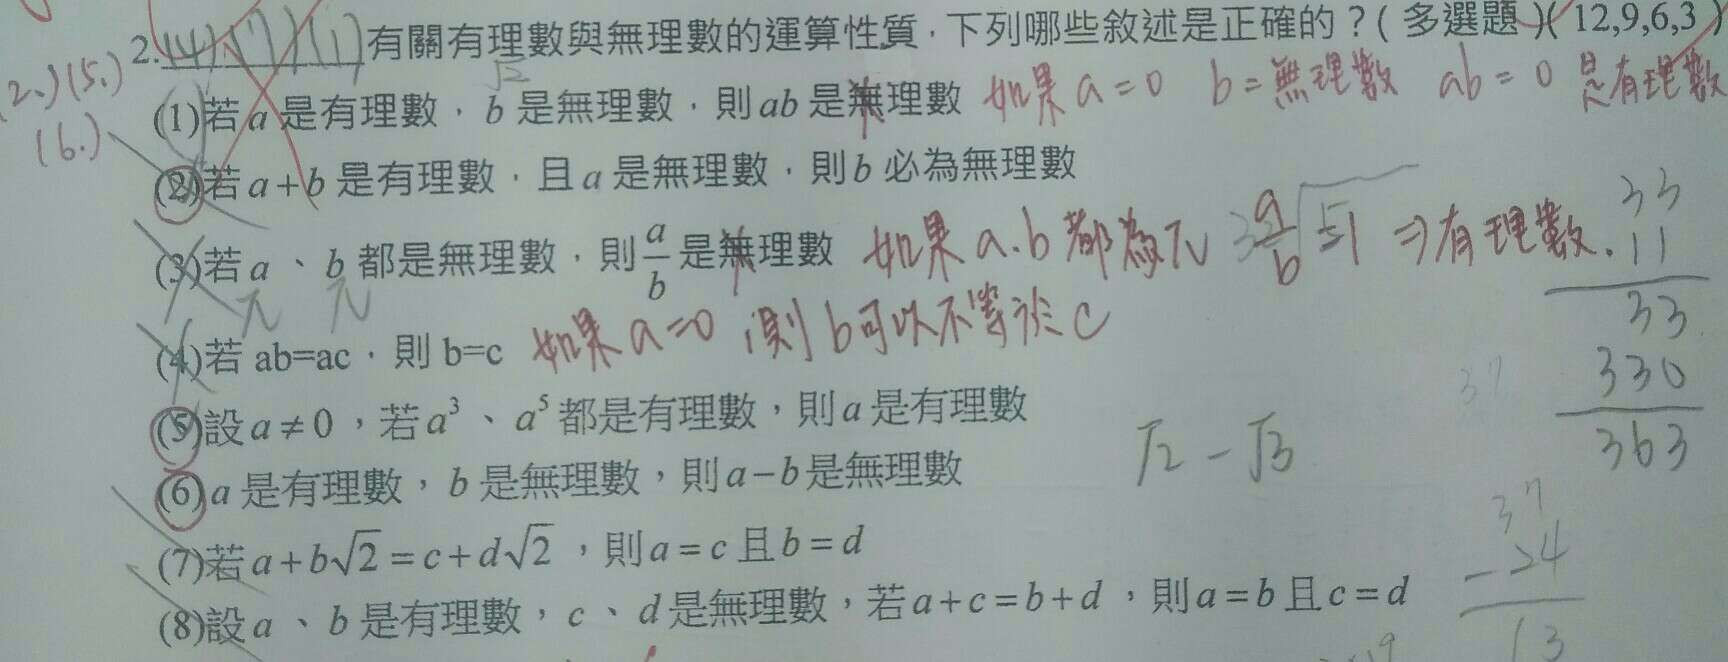 2. (4)(7)(1) 有關有理數與無理數的運算性質，下列哪些敘述是正確的？( 多選題 )( 12,9,6,3 )
(2.)(5.)
(6.)
√2
(1)若 a 是有理數，b 是無理數，則 ab 是無理數 如果 a=0 b=無理數 ab=0 是有理數
(2)若 a+b 是有理數，且 a 是無理數，則 b 必為無理數
(3)若 a、b 都是無理數，則 a/b 是無理數 如果 a.b 都為π a/b ⇒有理數.
π π
(4)若 ab=ac，則 b=c 如果 a=0 則 b可以不等於 c
(5)設 a≠0，若 a³、a⁵ 都是有理數，則 a 是有理數
(6) a 是有理數，b 是無理數，則 a−b 是無理數
(7)若 a+b√2=c+d√2，則 a=c 且 b=d
(8)設 a、b 是有理數，c、d 是無理數，若 a+c=b+d，則 a=b 且 c=d
√2 - √3
33
11
33
330
363
37
37
-24
13